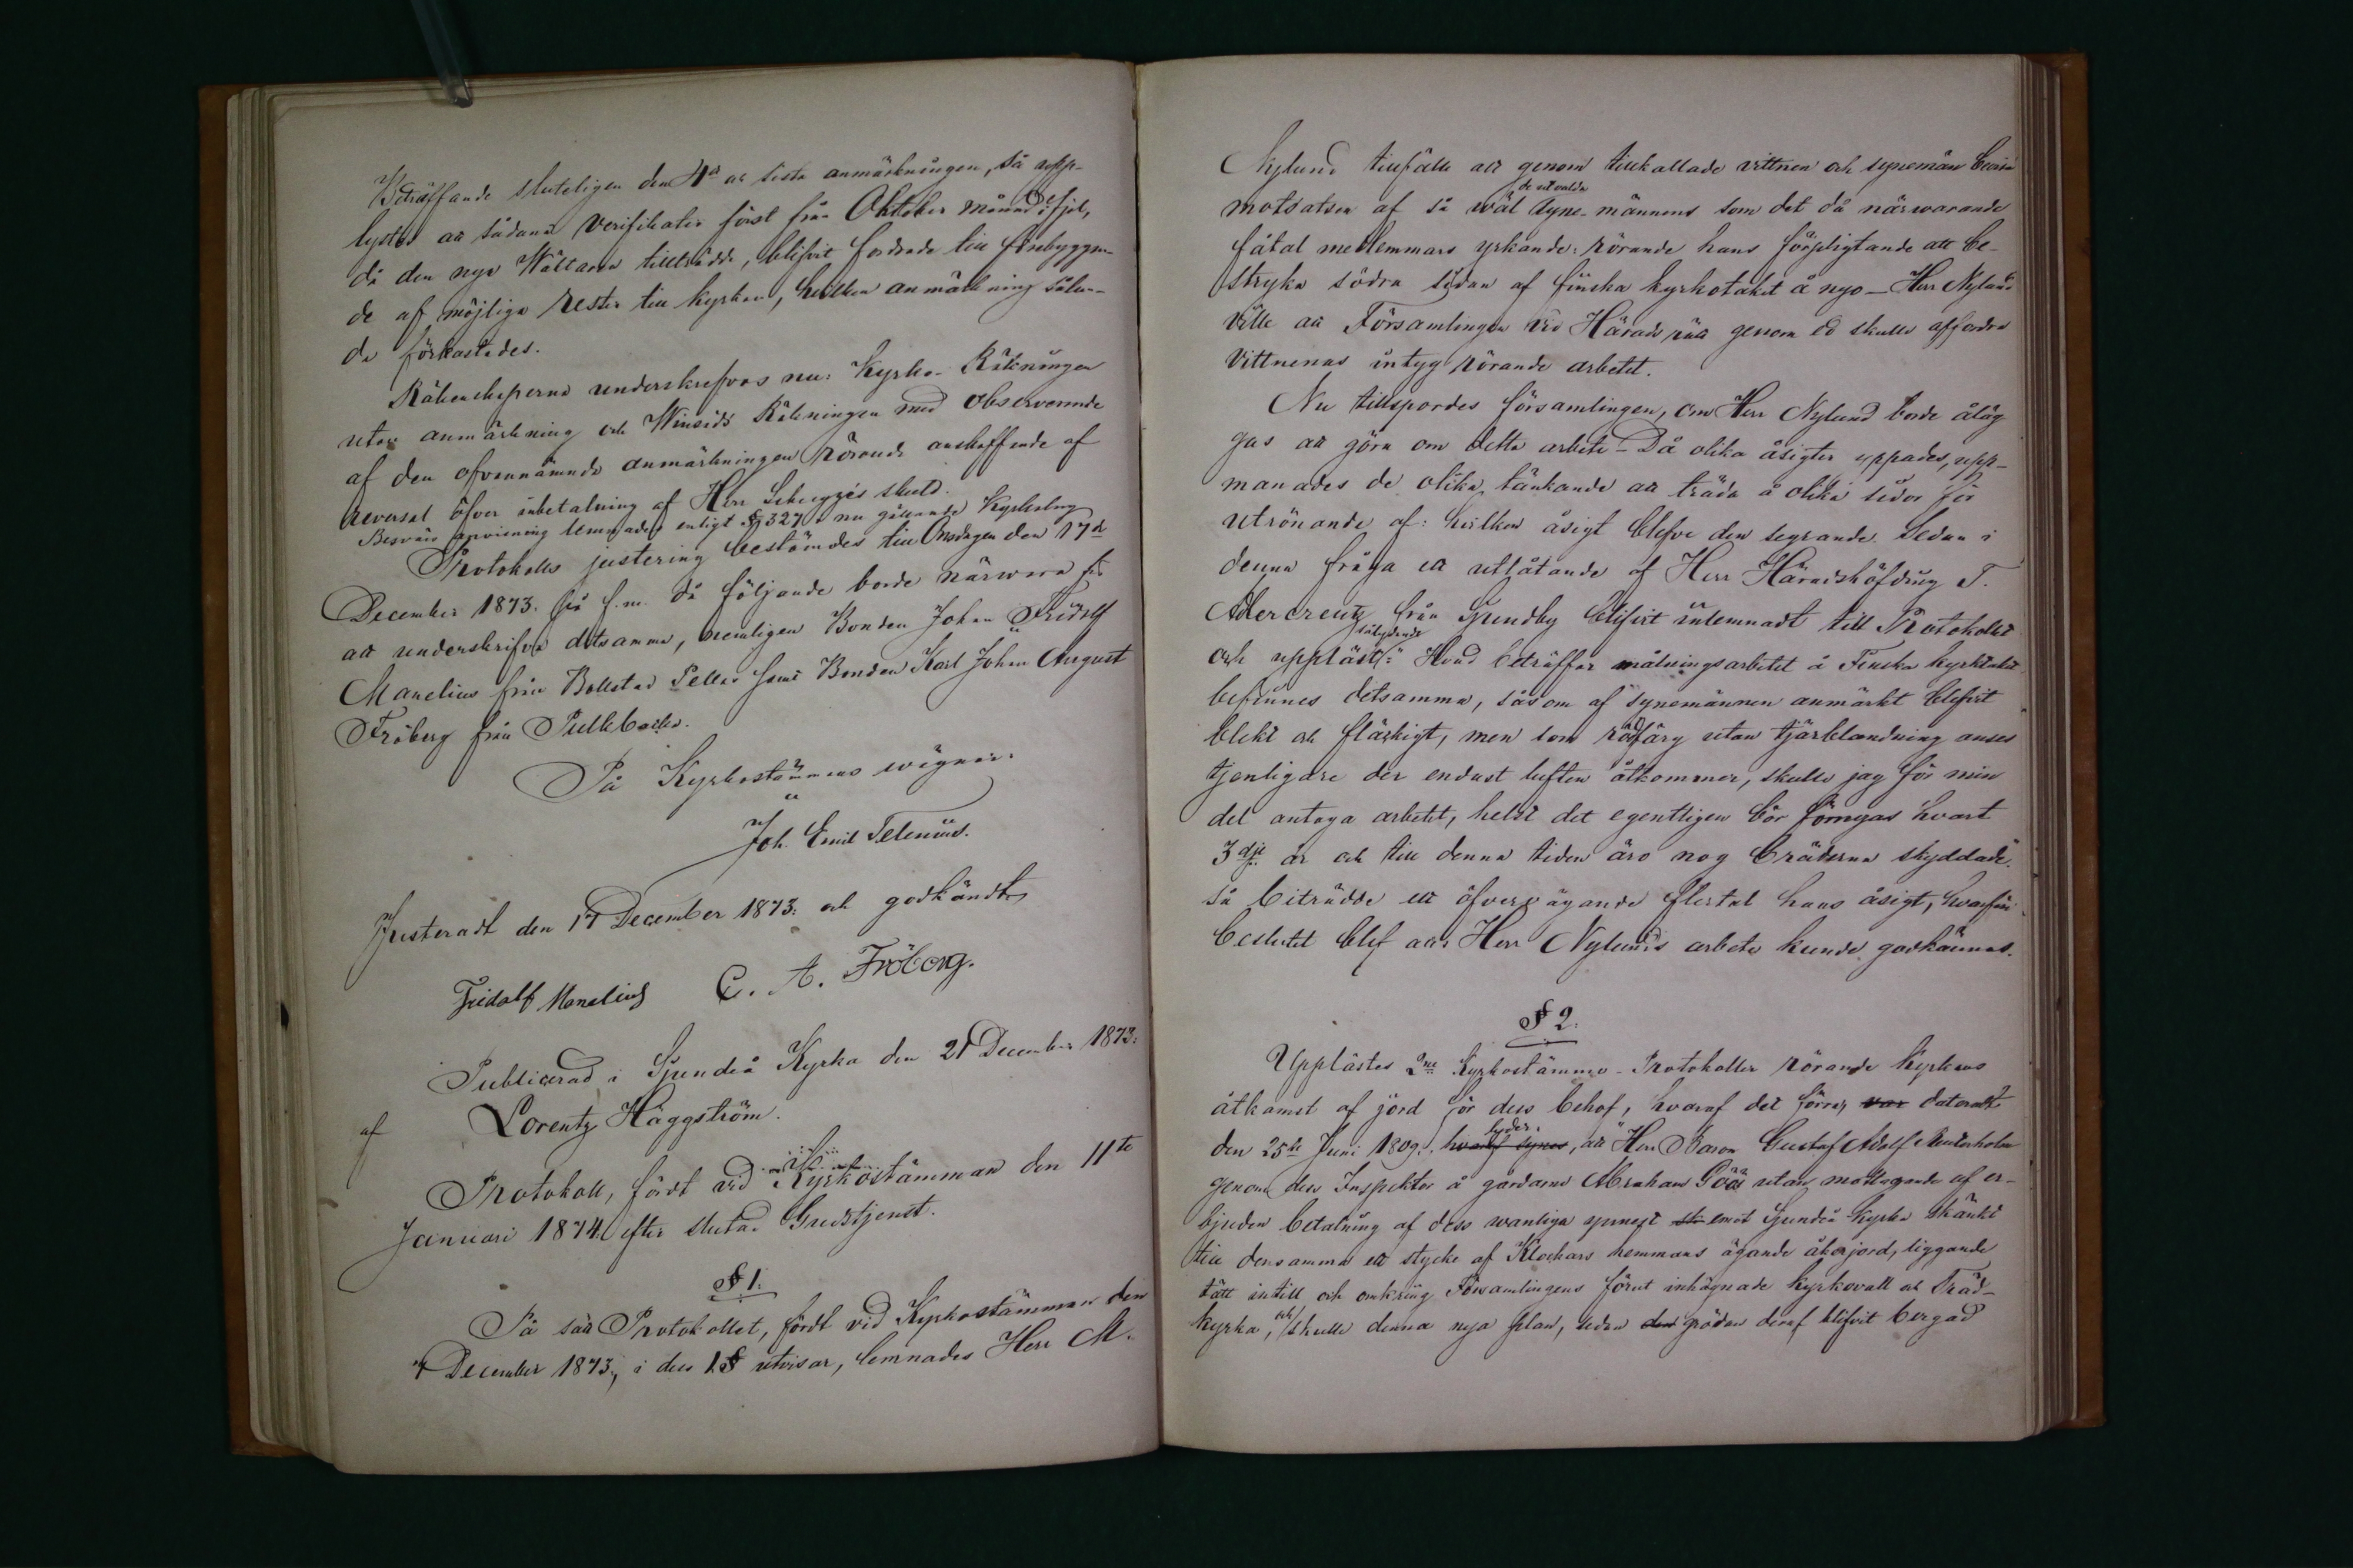 Beträffande sluteligen den 4de och sista anmärkningen, så upp-
lystes att sådana verifikater först från Oktober månad i fjol,
då den nya Wältaren tillträdde, blifvit fordrade till förebyggan-
de af möjliga rester till kyrkan, hvilken anmärkning sålun-
da förkastades.
Räkenskaperna underskrefvos nu: Kyrko-Räkningen
utan anmärkning och Winsäds Räkningen med observerande
af den ofvannämnde anmärkningen rörande anskaffende af
reversal öfver inbetalning af Herr skuld.
Besvärs anvisning lemnades enligt § 327 i nu gällande Kyrkolag
Protokolls justering bestämdes till Onsdagen den 17de
December 1873. på f.m. då följande borde närwara för
att underskrifva detsamma, nemligen Bonden Johan Fridolf
Manelius från Bollstad Pellas samt Bonden Karl Johan August
Fröberg från Pullbacka.
På Kyrkostämmans wägnar:
Joh. Emil Telenius.
Justeradt den 17 December 1873: och godkändt
Fridolf Manelius C. A. Fröberg.
Publicerad i Sjundeå Kyrka den 21 December 1873:
af Lorentz Häggström.
Protokoll, fördt vid Kyrkostämman den 11te
Januari 1874. efter slutad Gudstjenst.
§ 1.
På sätt Protokollet, fördt vid Kyrkostämman den
7 December 1873., i dess 1 § utvisar, lemnades Herr M.
Nylund tillfälle att genom tillkallade vittnen och synemän bevisa
motsatsen af så wäl de utvalda syne-männens som det då närwarande
fåtal medlemmars yrkande: rörande hans förpligtande att be-
stryka södra sidan af finska kyrkotaket å nyo – Herr Nylund
ville att Församlingen vid Häradsrätt genom ed skulle affordra
vittnenas intyg rörande arbetet.
Nu tillspordes församlingen, om Herr Nylund borde åläg
gas att göra om detta arbete – Då olika åsigter yppades, upp-
manades de olika tänkande att träda å olika sidor för
utrönande af: hvilken åsigt blefve den segrande. Sedan i
denna fråga ett utlåtande af Herr Häradshöfding T.
Adlercreutz från Sjundby blifvit inlemnadt till Protokollet
och uppläst sålydande: "Hvad beträffar målningsarbetet å Finska kyrktaket
befinnes detsamma, såsom af synemännen anmärkt blifvit
blekt och fläckigt, men som rödfärg utan tjärblandning anses
tjenligare der endast luften åtkommer, skulle jag för min
del antaga arbetet, helst det egentligen bör förnyas hvart
3dje år och till denna tiden äro nog bräderna skyddade."
så biträdde ett öfvervägande flertal hans åsigt, hvarför
beslutet blef att Herr Nylunds arbete kunde godkännas.
§ 2.
Upplästes 2ne Kyrkostämmo-Protokoller rörande kyrkans
åtkomst af jord för dess behof, hvaraf det förra var dateradt
den 25te Juni 1809., hvaraf synes lyder:, att "Herr Baron Gustaf Adolf
genom dess Inspektor å gårdarne Abraham Göös utan mottagande af er-
bjuden betalning af dess wanliga ynnest emot Sjundeå kyrka skänkt
till densamma ett stycke af Klockars hemmans ägande åkerjord, liggande
tätt intill och omkring Församlingens förut inhägnade kyrkovall och Träd-
kyrka, och skulle denna nya plan, sedan den grödan deraf blifvit bergad